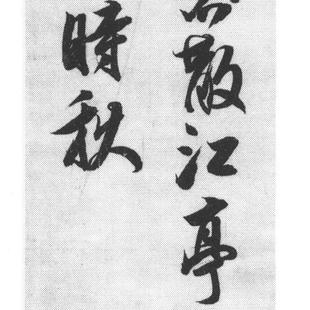 散江亭
時秋